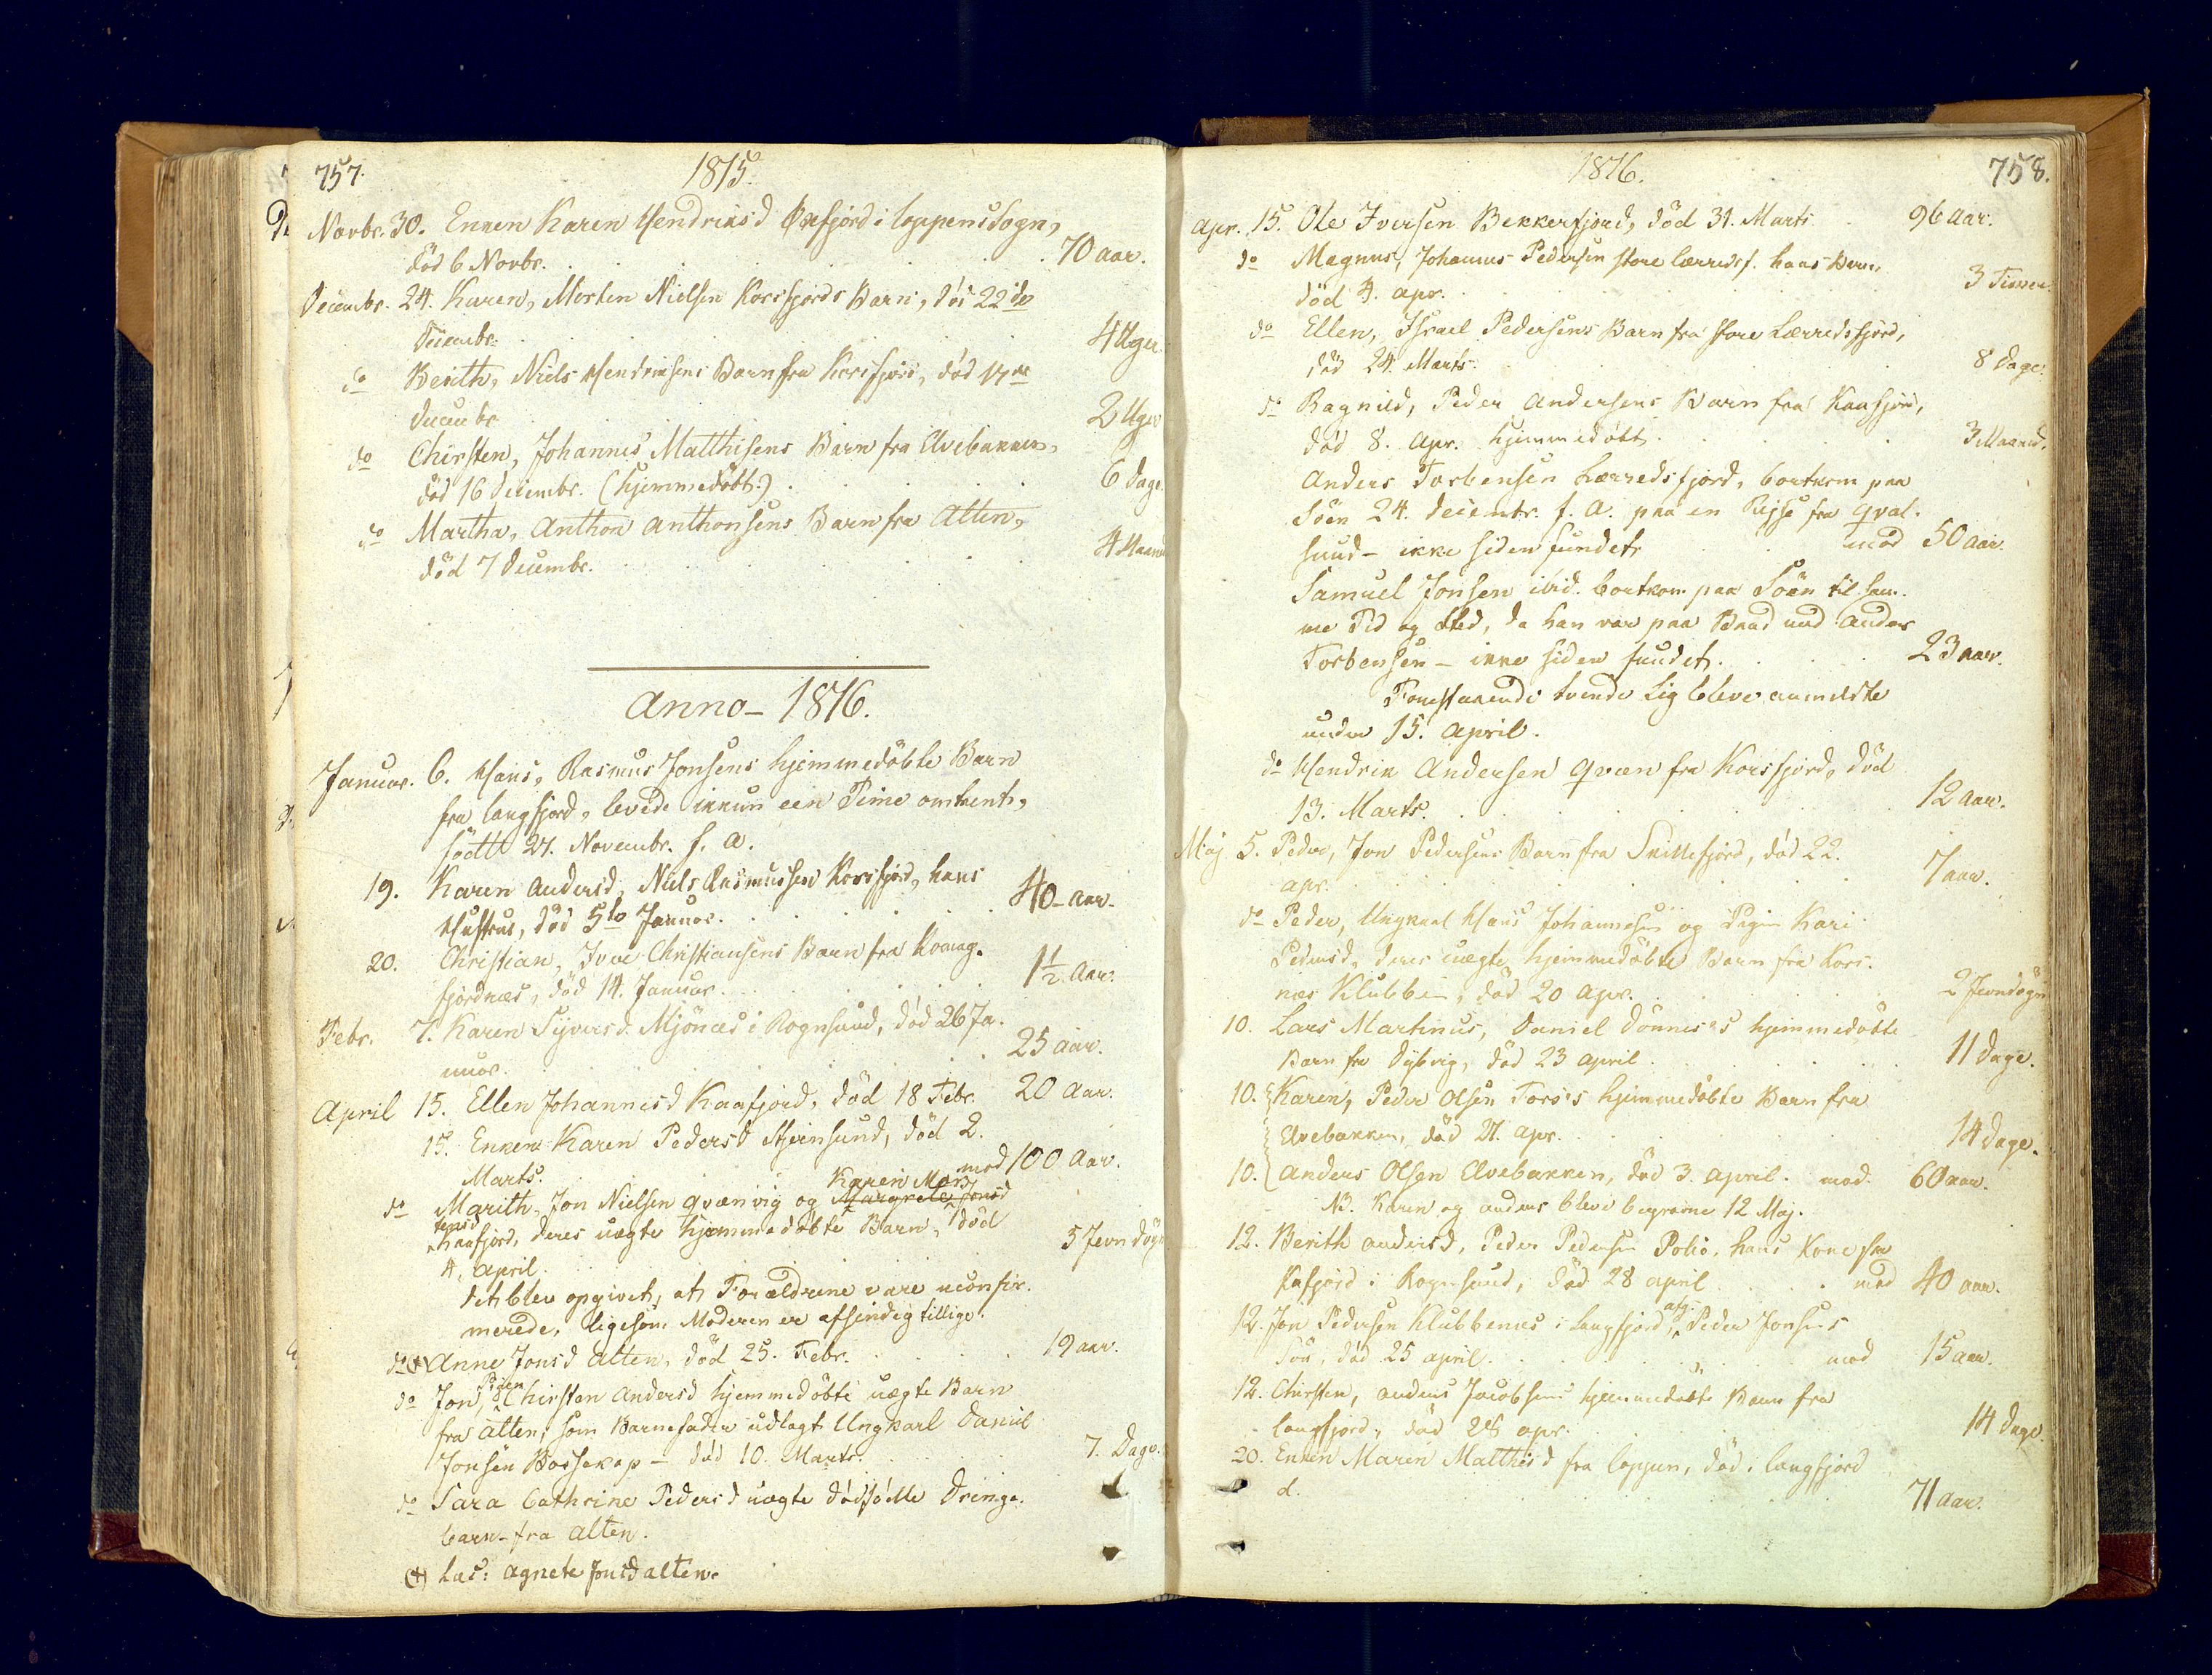 757.
1815.
Novbr. 30. Enken Karen Hendriksd Øxfjord i Loppens Sogn,
død 6 Novbr. 70 aar.
Decembr. 24. Karen, Morten Nielsen Korsfjords Barn, død 22de
Decembr. 4 Uger.
do Berith, Niels Hendriksens Barn fra Korsfjord, død 17de
Decembr. 2 Uger
do Chirsten, Johannes Matthisens Barn fra Elvebakken,
død 16 Decembr. (hjemmedøbt.) 6 Dage.
do Martha, Anthon Anthonsens Barn fra Alten,
død 7 Decembr. 4 Maand
Anno - 1816.
Januar. 6. Hans, Rasmus Jonsens hjemmedøbte Barn
fra Langfjord, levede ikkun een Time omtrent,
født 27. Novembr. f. A.
19. Karen Andersd, Niels Rasmussens Korsfjord, hans
Hustrue, død 5te Januar. 40 aar.
20. Christian, Iver Christiansens Barn fra Komag-
fjordnæs, død 14. Januar. 1 1/2 Aar.
Febr. 7. Karen Syversd. Mjönæs i Rognsund, død 26 Ja-
nuar. 25 aar.
April 15. Ellen Johannesd Kaafjord, død 18 Febr. 20 Aar.
15. Enken Karen Pedersd Stjernsund, død 2.
Marts. mod 100 Aar.
Karen Mor-
do Marith, Jon Nielsen Qvænvig og Margrete Jonsd
tensd
Kaafjord, deres uægte hjemmedøbte Barn, død
4. April. 5 Jevndøgn
det blev opgivet, at Forældrene vare uconfir-
merede, ligesom Moderen er afsindig tillige.
do (+) Anne Jonsd Alten, død 25. Febr. 19 aar.
Pigen
do Jon, Chirsten Andersd hjemmedøbte uægte Barn
fra Alten, som Barnefader udlagt Ungkarl Daniel
Jonsen Bossekop - død 10. Marts. 7. Dage.
do Sara Cathrine Pedersd uægte dødfødte Drenge-
barn - fra Alten.
(+) Læs: Agnete Jonsd Alten.
1816.
758.
Apr. 15. Ole Iversen Bekkerfjord, død 31. Marts 96 Aar.
do Magnus, Johannes Pedersen store Lærredsf. hans Barn,
død 4. Apr. 3 Timer.
do Ellen, Israel Pedersens Barn fra store Lærredsfjord,
død 24. Marts. 8 Dage.
do Ragnild, Peder Andersens Barn fra Kaafjord,
død 8. Apr. hjemmedøbt. 3 Maaned.
Anders Torbensen Lærredsfjord, bortkom paa
Søen 24. Decembr. f. A. paa en Rejse fra Qval-
sund - ikke siden fundet. mod 50 aar.
Samuel Jonsen ibid. bortkom paa Søen til sam-
me Tid og Sted, da han var paa Baad med Anders
Torbensen - ikke siden fundet. 23 aar.
Foranstaaende tvende Lig bleve anmeldte
under 15. April.
do Hendrik Andersen Qvæn fra Korsfjord, død
13. Marts. 12 aar.
Maj 5. Peder, Jon Pedersens Barn fra Skillefjord, død 22.
apr. 7 aar.
do Peder, Ungkarl Hans Johannesen og Pigen Kari
Pedersd, deres uægte hjemmedøbte Barn fra Kors-
næs Klubben, død 20 Apr. 2 Jevndøgn
10. Lars Martinus, Daniel Dønnes's hjemmedøbte
Barn fra Dybvig, død 23 April 11 Dage.
10. Karen, Peder Olsen Torös's hjemmedøbte Barn fra
Elvebakken, død 27. Apr. 14 Dage.
10. Anders Olsen Elvebakken, død 3. April. mod. 60 aar.
NB. Karen og Anders bleve begravne 12 Maj.
12. Berith Andersd, Peder Pedersen Polio, hans Kone fra
Kafjord i Rognsund, død 28 April mod 40 aar.
afg.
12. Jon Pedersen Klubbenes i Langfjord, Peder Jonsens
Søn, død 25 April. mod 15 aar.
12. Chirsten, Anders Jacobsens hjemmedøbte Barn fra
Langfjord, død 28 apr. 14 Dage.
20. Enken Maren Matthisd fra Loppen, død i Langfjord
d. 71 aar.